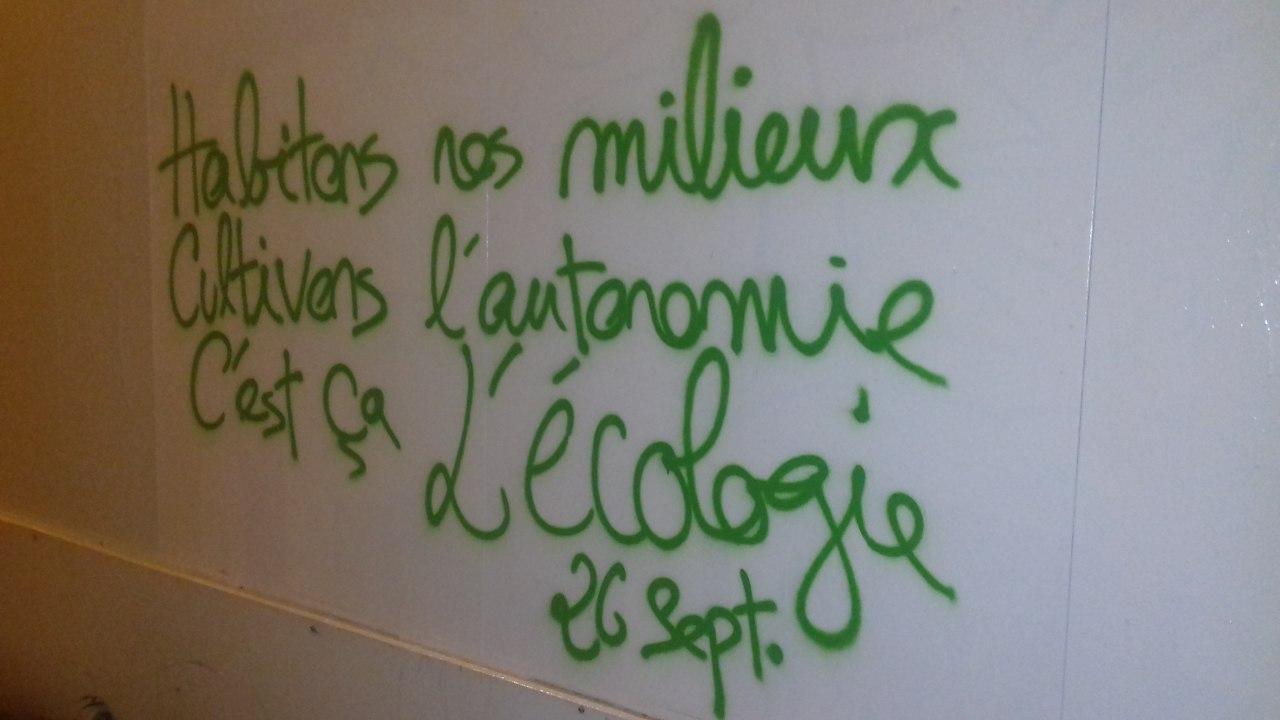 Habitons nos milieux
Cultivons l'autonomie
C'est ça L'écologie
26 sept.